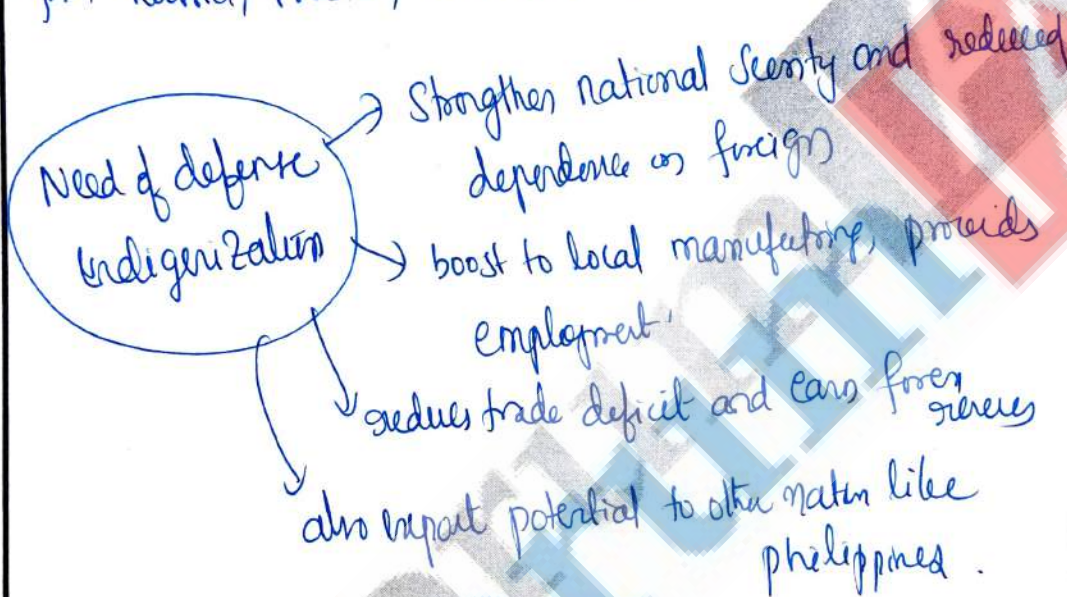 Need of defense
indigenization
Strengthen national security and reduced
dependence on foreign
boost to local manufacturing, provids
employment
reduces trade deficit and earn forex
reserves
also export potential to other nation like
philippines.